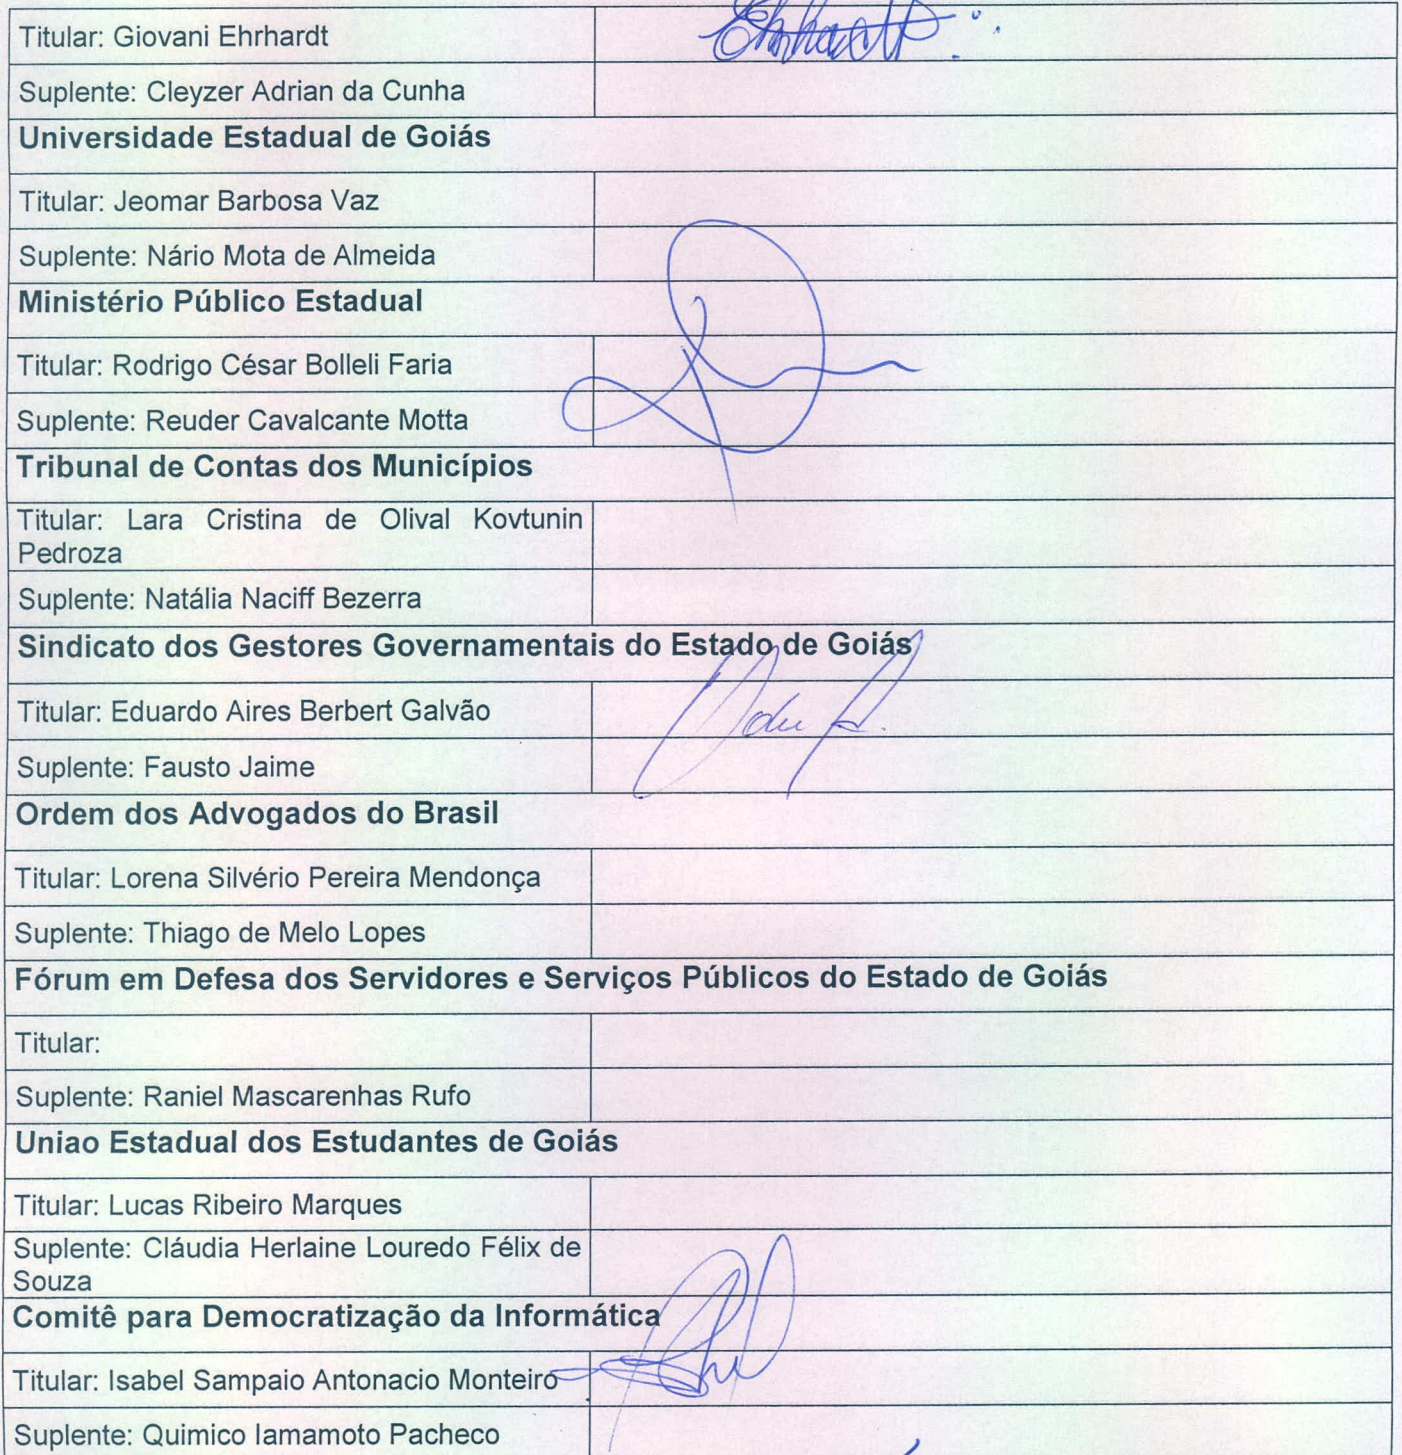 Titular: Giovani Ehrhardt
Ehrhardt
Suplente: Cleyzer Adrian da Cunha
Universidade Estadual de Goiás
Titular: Jeomar Barbosa Vaz
Suplente: Nário Mota de Almeida
Ministério Público Estadual
Titular: Rodrigo César Bolleli Faria
Suplente: Reuder Cavalcante Motta
Tribunal de Contas dos Municípios
Titular: Lara Cristina de Olival Kovtunin
Pedroza
Suplente: Natália Naciff Bezerra
Sindicato dos Gestores Governamentais do Estado de Goiás
Titular: Eduardo Aires Berbert Galvão
Suplente: Fausto Jaime
Ordem dos Advogados do Brasil
Titular: Lorena Silvério Pereira Mendonça
Suplente: Thiago de Melo Lopes
Fórum em Defesa dos Servidores e Serviços Públicos do Estado de Goiás
Titular:
Suplente: Raniel Mascarenhas Rufo
Uniao Estadual dos Estudantes de Goiás
Titular: Lucas Ribeiro Marques
Suplente: Cláudia Herlaine Louredo Félix de
Souza
Comitê para Democratização da Informática
Titular: Isabel Sampaio Antonacio Monteiro
Suplente: Quimico Iamamoto Pacheco